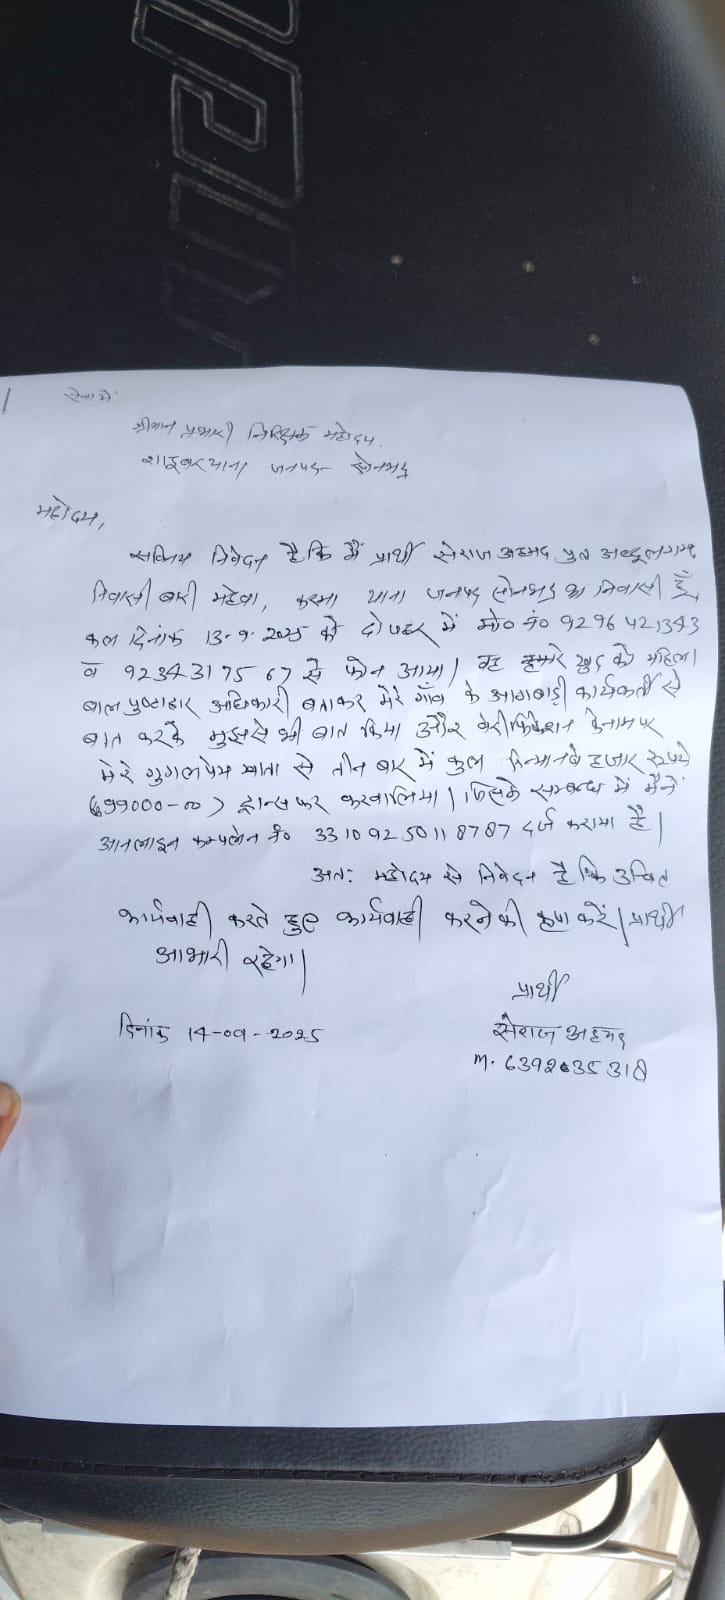 सेवा में
श्रीमान प्रभारी निरिक्षक महोदय.
साइबर थाना जनपद- सोनभद्र
महोदय,
सविनय निवेदन है कि मैं प्रार्थी सेराज अहमद पुत्र
निवासी बारी महेवा, करमा थाना जनपद सोनभद्र का निवासी हूँ
कल दिनांक 13-9-2025 को दोपहर में मो० नं० 9296421343
व 9234317567 से फोन आया। वह हमारे खुद को महिला
बाल पुष्टाहार अधिकारी बताकर मेरे गाँव के आगबाड़ी कार्यकर्ती से
बात करके मुझसे भी बात किया और वेरीफिकेशन के नाम पर
मेरे गुगल पे खाता से तीन बार में कुल निन्यानबे हजार रूपये
99000-00) ट्रान्सफर करवा लिया। जिसके सम्बन्ध में मैंने
आनलाइन कम्पलेन नं० 33109250118787 दर्ज कराया है।
अतः महोदय से निवेदन है कि उचित
कार्यवाही करते हुए कार्यवाही करने की कृपा करें। प्रार्थी
आभारी रहेगा।
प्रार्थी
दिनांक 14-09-2025
सेराज अहमद
m. 6392635318